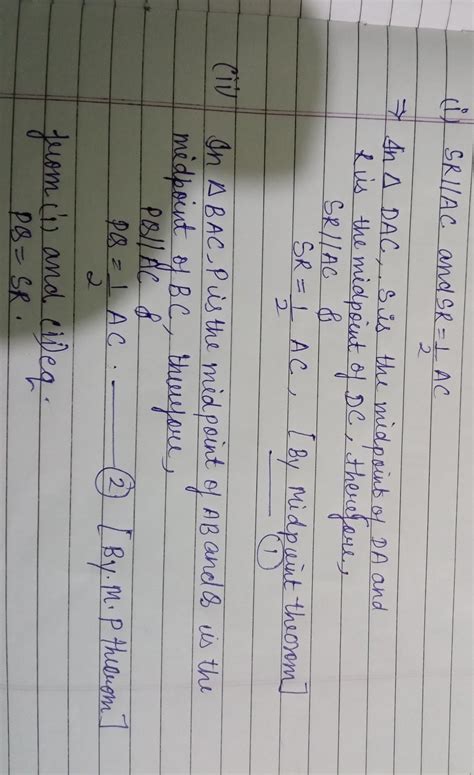 (i) SR//AC and SR = 1/2 AC
⇒ In Δ DAC, S is the midpoint of DA and
R is the midpoint of DC, therefore,
SR//AC &
SR = 1/2 AC, [By Midpoint theorom]
—— ①
(ii) In Δ BAC, P is the midpoint of AB and Q is the
midpoint of BC, therefore,
PQ//AC &
PQ = 1/2 AC. —— ② [By. M. P theorom]
from (i) and (ii) eq.
PQ = SR.